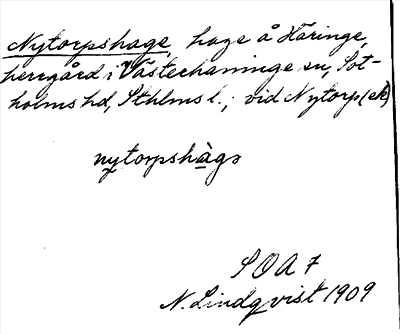 Nytorpshage, hage å Häringe,
herrgård i Västerhaninge sn, Sot-
holms hd, Sthlms l.; vid Nytorp (ek)
nytorpshàgə
SOA 7
N. Lindqvist 1909